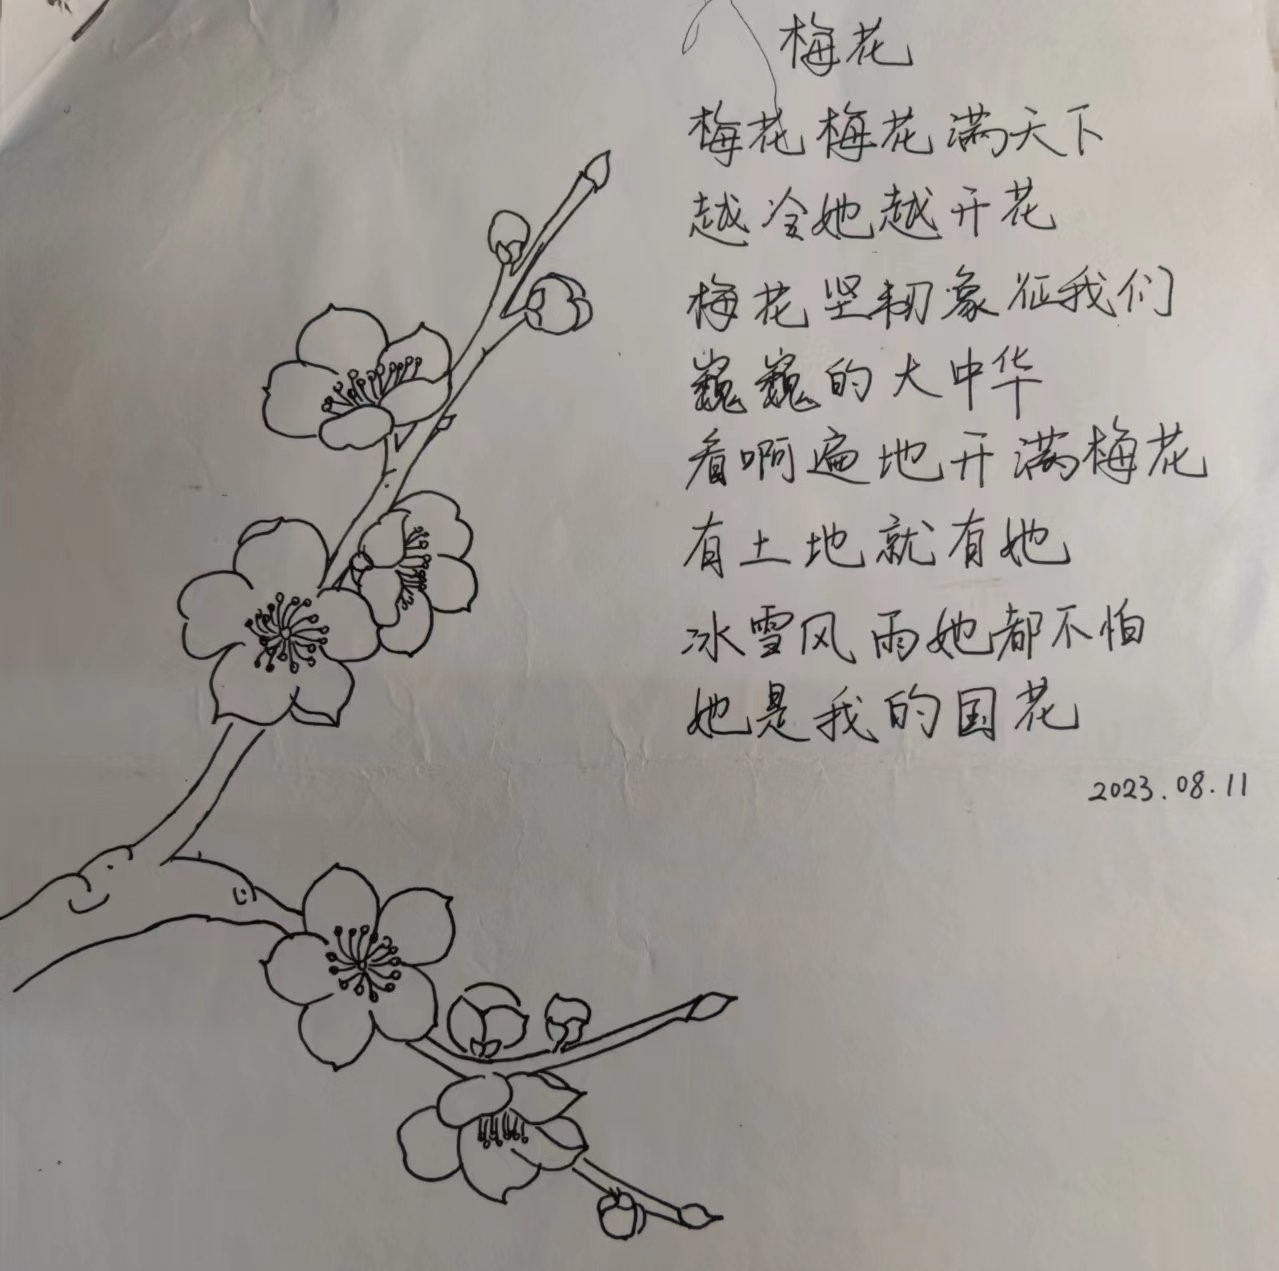 梅花
梅花梅花满天下
越冷她越开花
梅花坚韧象征我们
巍巍的大中华
看啊遍地开满梅花
有土地就有她
冰雪风雨她都不怕
她是我的国花
2023.08.11